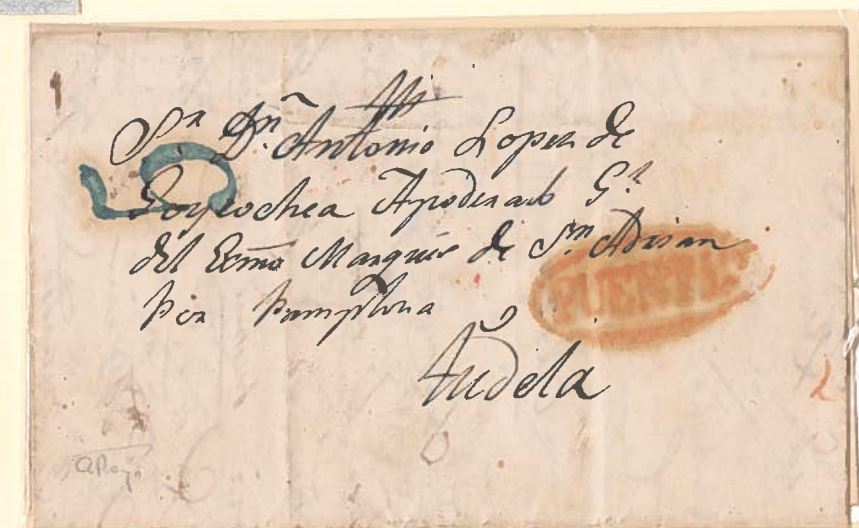 Sr. Dn. Antonio Lopez de
Goycochea Apoderado Gl.
del Exmo Marques de Sn. Adrian
Por Pamplona
Tudela
5
PUENTE